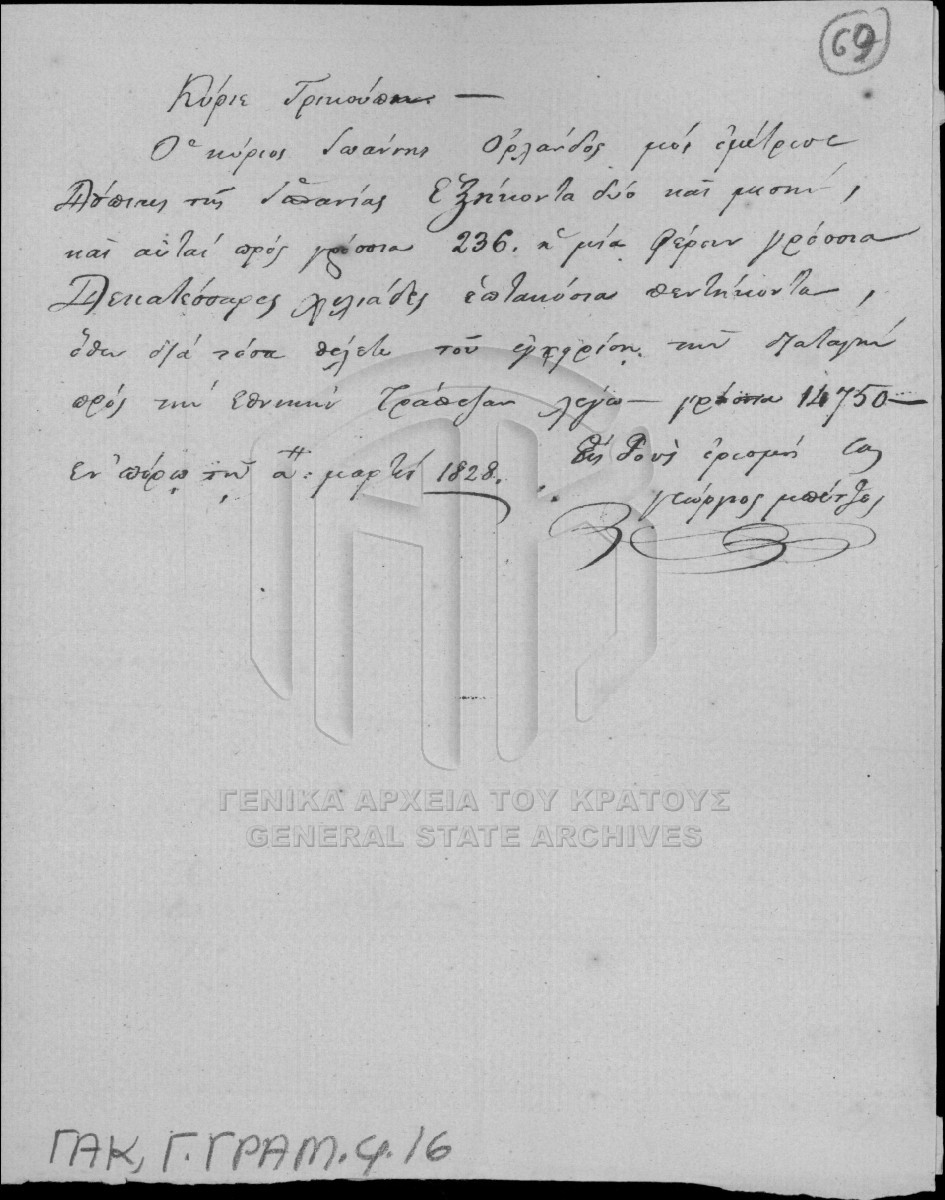 69
Κύριε Τρικούπη —
Ὁ κύριος Ἰωάννης Ὀρλάνδος μοί ἐμέτρισε
Δόπιες τῆς Ἰσπανίας Ἑξήκοντα δύο καὶ μισὴν,
καὶ αὐταί πρός γρόσσια 236. ἡ μία φέρουν γρόσσια
Δεκατέσσαρες χιλιάδες ἑπτακόσια πεντήκοντα,
ὅθεν διά τόσα θέλετε τοῦ ἐγχειρίση την διαταγήν
πρός την Εθνικήν Τράπεζαν λέγω — γρόσσια 14750 —
Ἐν πόρῳ τῇ α: μαρτί 1828.
εἰς τούς ὁρισμούς σας
γεώργιος μπότζος
ΓΕΝΙΚΑ ΑΡΧΕΙΑ ΤΟΥ ΚΡΑΤΟΥΣ
GENERAL STATE ARCHIVES
ΓΑΚ, Γ. ΓΡΑΜ. φ. 16